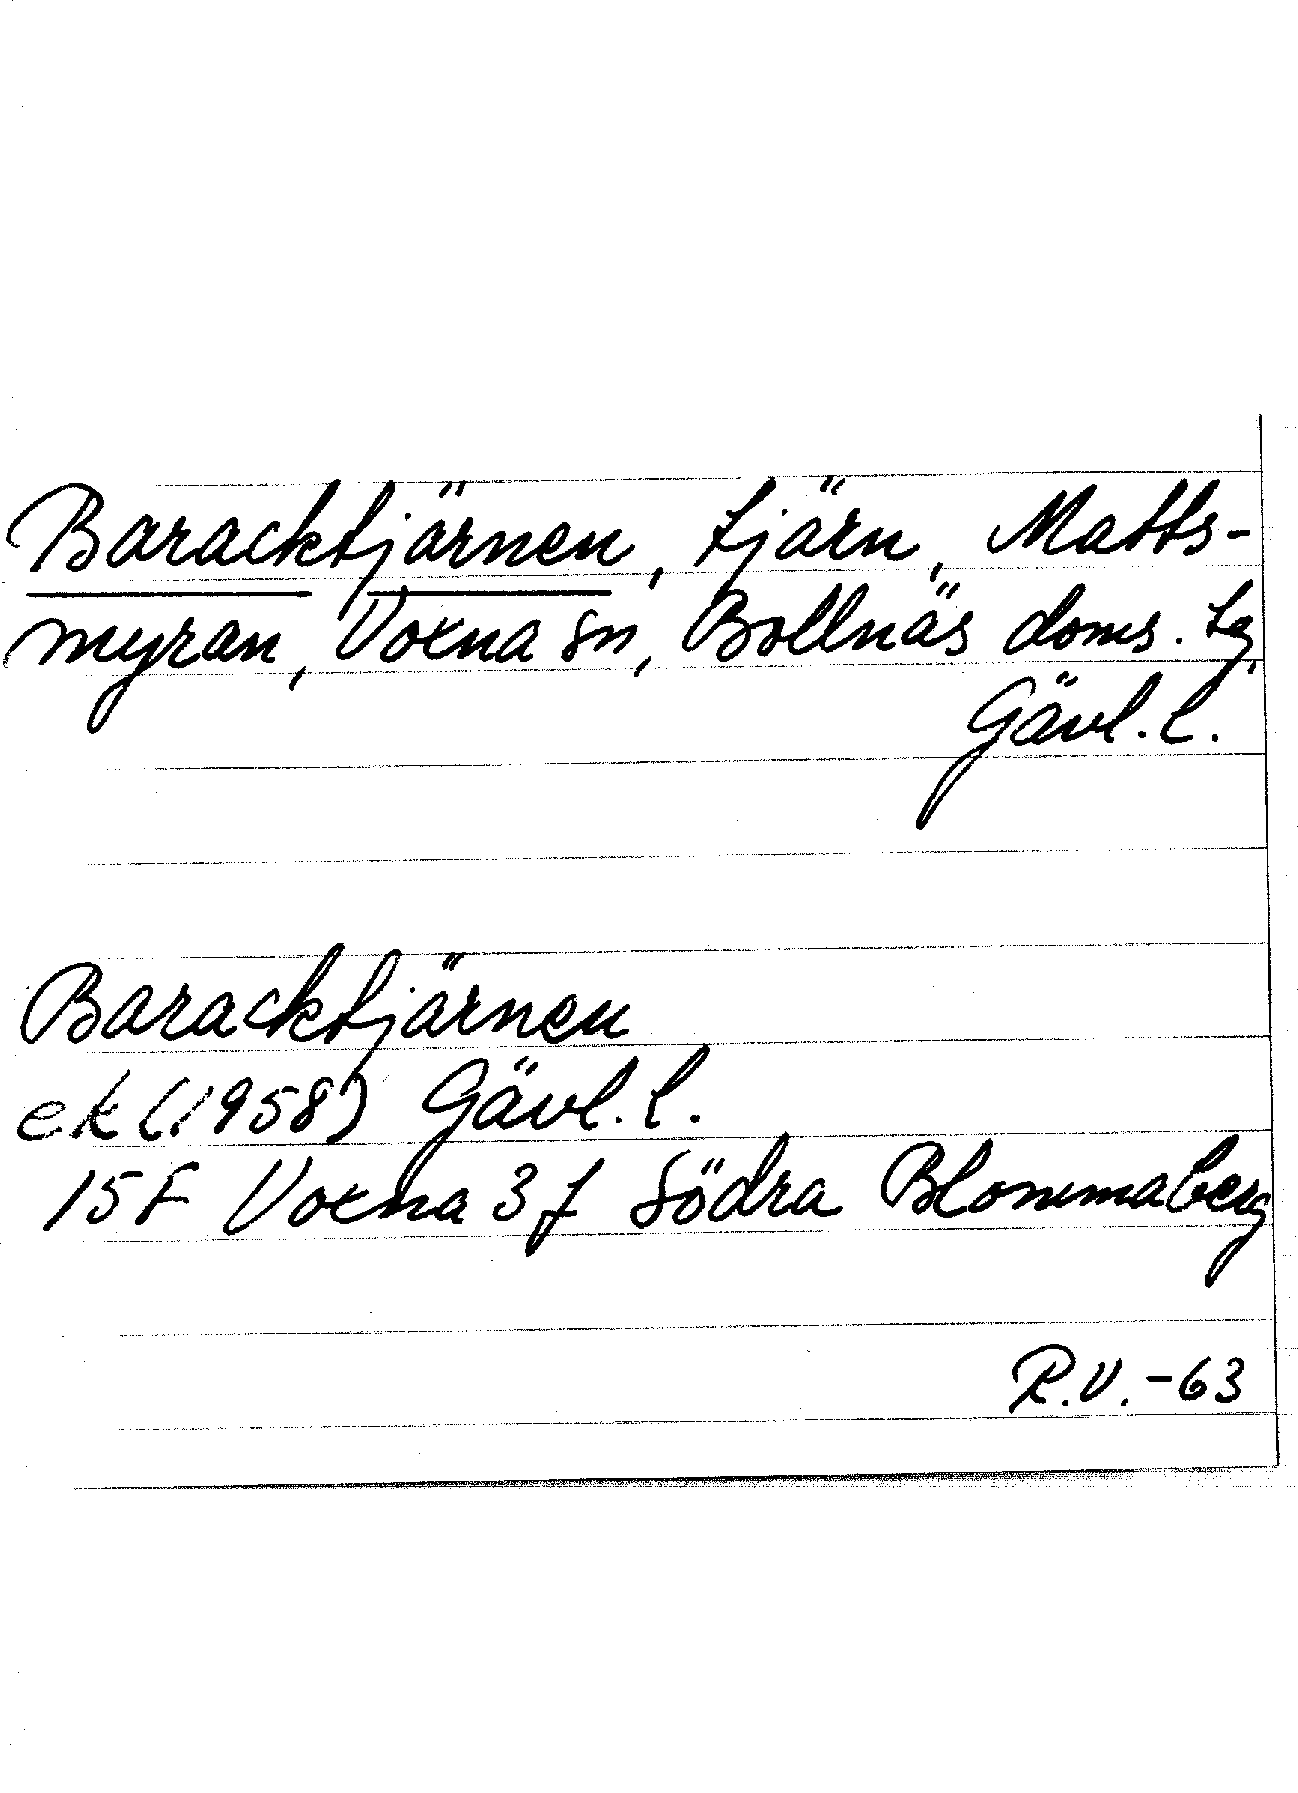 Baracktjärnen, tjärn, Matts-
myran, Voxna sn, Bollnäs doms. tg,
Gävl. l.
Baracktjärnen
ek (1958) Gävl. l.
15F Voxna 3f Södra Blommaberg
R.V. -63